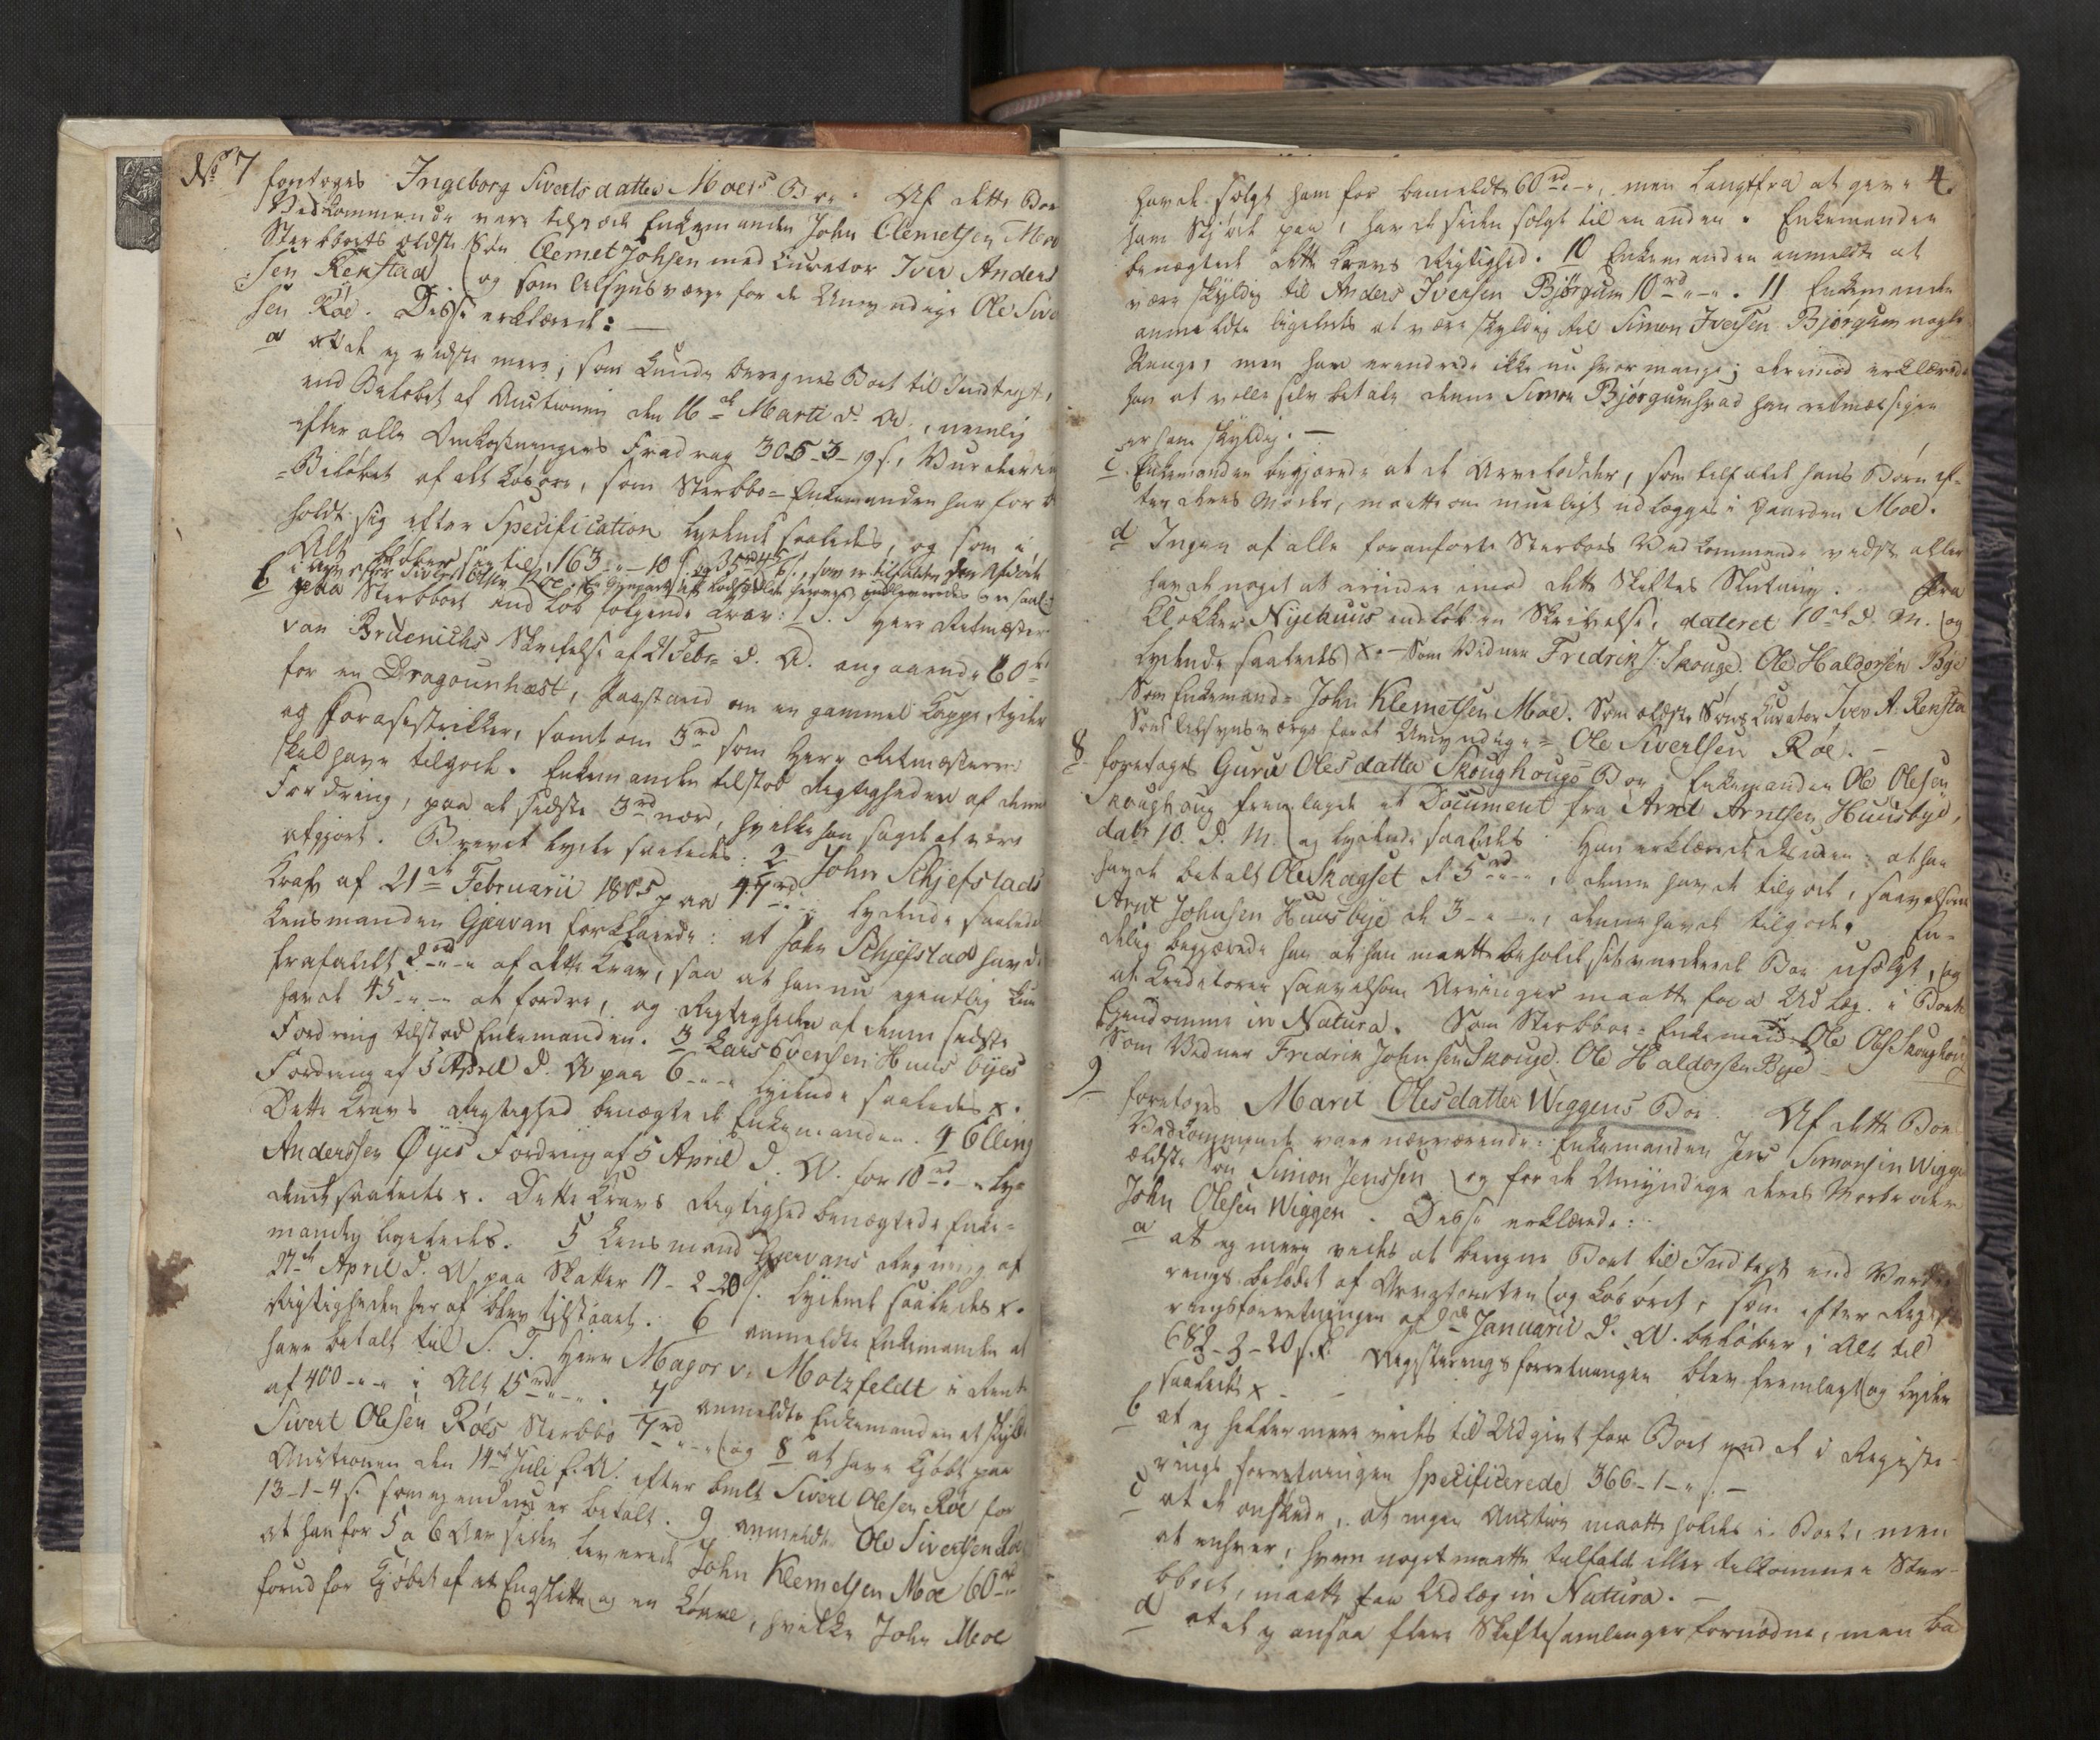 No 7 foretoges Ingeborg Sivertsdatter Moe's Boe. Af dette Boes
Vedkommende vare tilstæde Enkemanden John Clemetsen Moe
Sterboets ældste Søn Clemet Johsen med Curator Iver Anders
sen Renstad og som tilsynsværge for de Umyndige Ole Siver
sen Røe. Disse erklærede:
a at de ej vidste mere, som kunde beregnes Boet til Indtægt,
end Beløbet af Auctionen den 16de Marti d. A., nemlig
efter alle Omkostningers Fradrag 305-3-19 s., Vurderings
-Beløbet af alt Løsøre, som Sterbboe-Enkemanden har for be
holdt sig efter Specification lydende saaledes, og som i
Alt beløber sig til 163-"-10 s. og 35rd
b i Arv efter Sivert Olsen Røe,
paa Sterbboet indløb følgende Krav: 1 S. T. Herr Ritmester
von Brüenichs Skrivelse af 21 Febr. d. A. angaaende 60rd
for en Dragounhæst, Paastand om en gammel Kappe, Hynder
og Forasestrikker, samt om 3rd som Herr Ritmesteren
skal have tilgode. Enkemanden tilstod Rigtigheden af denne
Fordring, paa de sidste 3rd nær, hvilke han sagde at være
afgjort. Brevet lyder saaledes: 2 John Schjefstads
Krav af 21de Februarii 1805 paa 47rd lydende saaledes
Lensmanden Gjævan forklarede: at John Schjefstad havde
frafaldt 2rd"-" af dette Krav, saa at han nu egentlig kun
havde 45-"-" at fordre, og Rigtigheden af denne sidste
Fordring tilstod Enkemanden. 3 Lars Evensen Huus byes
Fordring af 5 April d. A paa 6-"-" lydende saaledes x.
Dette Kravs Rigtighed benægtede Enkemanden. 4 Elling
Anderssen Øyes Fordring af 5 April d. A. for 10rd-" ly-
dende saaledes x. Dette Kravs Rigtighed benægtede Enke-
manden ligeledes. 5 Lensmand Gjævans Regning af
27de April d. A paa Skatter 17-2-20 s. lydende saaledes x.
Rigtigheden heraf blev tilstaaet. 6 anmeldte Enkemanden at
have betalt til S. T. Herr Major v. Motzfeldt i Rente
af 400-"-" i Alt 15rd"-". 7 anmeldte Enkemanden at skylde
Sivert Olesen Røes Sterbbo 7rd"-" og 8 at have kjøbt paa
Auctionen den 14de Juli f. A. efter bemte Sivert Olesen Røe for
13-1-4 s. som ej endnu er betalt. 9 anmeldte Ole Sivertsen Røe
at han for 5 a 6 Aar siden leverede John Klemetsen Moe 60rd
forud for Kjøbet af et Engslette og en Løkke, hvilke John Moe
4.
havde solgt ham for bemeldte 60rd"-", men langtfra at give
ham Skjøde paa, havde siden solgt til en anden. Enkemanden
benægtede dette Kravs Rigtighed. 10 Enkemanden anmeldte at
være skyldig til Anders Iversen Bjørgum 10rd"-". 11 Enkemanden
anmeldte ligeledes at være skyldig til Simon Iversen Bjørgum nogle
Penge, men han erindrede ikke nu hvor mange; derimod erklærede
han at ville selv betale denne Simon Bjørgum hvad han retmæssigen
er ham skyldig. -
c. Enkemanden begjærede at de Arvelodder, som tilfaldt hans Børn ef-
ter deres Moder, maatte om mueligt udlægges i Gaarden Moe.
d Ingen af alle foranførte Sterboes Vedkommende vidste eller
havde noget at erindre imod dette Skiftes Slutning. Fra
Klokker Nyehuus indløb en Skrivelse, dateret 10de d. M. og
lydende saaledes x. - Som Vidner Fredrik J: Skouge. Ole Haldorsen Bye
Som Enkemand= John Klemetsen Moe. Som ældste Søns Curator Iver A: Rensta
Som Tilsynsværge for de Umyndige= Ole Sivertsen Røe. -
8 foretoges Guru Olesdatta Skoughougs Boe. Enkemanden Ole Olesen
Skoughoug fremlagde et Document fra Arnt Arntsen Huusbye,
datr 10. d. M. og lydende saaledes Han erklærede desuden: at han
havde betalt Ole Skogset de 5rd"-", denne havde tilgode, saavelsom
Arnt Johnsen Huusbye de 3-"-", denne havde tilgode. En-
delig begjærede han at han maatte beholde sit vurderede Boe usolgt, og
at Creditorer saavelsom Arvinger maatte faae Udlæg i Boets
Eiendomme in Natura. Som Sterbboe= Enkemand Ole Ols: Skoughoug
Som Vidner Fredrik Johnsen Skouge. Ole Haldorsen Bye -
9 foretoges Marit Olesdatter Wiggens Boe. Af dette Boes
Vedkommende vare nærværende: Enkemanden Jens Simonsen Wiggen
ældste Søn Simon Jenssen og for de Umyndige deres Morbroder
John Olesen Wiggen. Disse erklærede:
a at ej mere vides at beregne Boet til Indtægt end Vurde-
rings beløbet af og Løsøret, som efter Registe-
ringsforretningen af 9de Januarii d. A. beløber i Alt til
682-3-20 s. Registerings forretningen blev fremlagt og lyder
saaledes x -
b at ej heller mere vides til Udgivt for Boet end de i Registe-
rings forretningen specificerede 366-1-" s. -
c at de ønskede, at ingen Auction maatte holdes i Boet, men
at enhver, hvem noget maatte tilfalde eller tilkomme i Ster-
bboet, maatte faae Udlæg in Natura. -
d at de ej ansaae flere Skiftesamlinger fornødne, men be